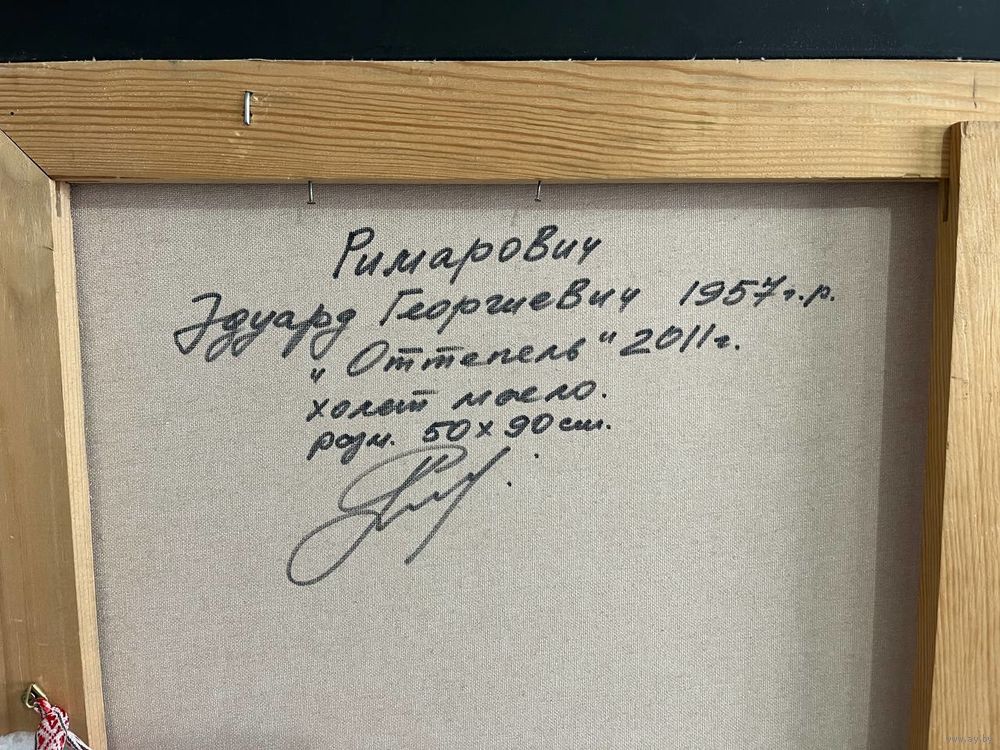 Римарович
Эдуард Георгиевич 1957г.р.
"Оттепель" 2011г.
холст масло.
разм. 50х90см.
www.ay.by